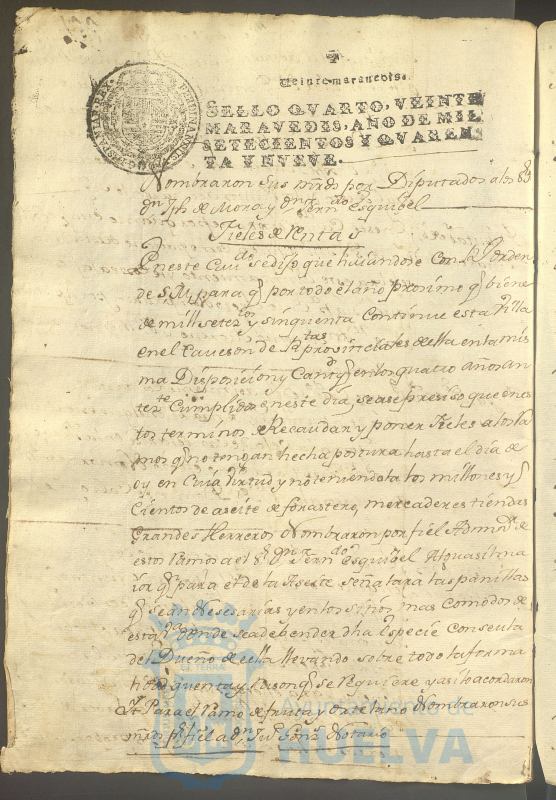 Veinte maravedis.
SELLO QVARTO, VEINTE
MARAVEDIS, AÑO DE MIL
SETECIENTOS Y QVAREN-
TA Y NVEVE.
Nombraron sus mrds por Diputados a los
dn Jph de Mora y dn Esquibel
fieles de Rentas
En este Cavdo se dijo que hallandose con la Horden
de S.M. para q por todo el año proximo q biene
de mill setetos y sinquenta Continue esta Villa
en el Caveson de Rtas provinciales de ella en la mis
ma Disposicion y Cantd q en los quatro años an
tezte Cumplidos en este dia, se ase presiso que en es
tos terminos se Recaudan y poner fieles a los Ra
mos q no tengan hecha postura hasta el dia de
oy en Cuia Virtud y no teniendola los millones y
Ciento de aseite de forastero, mercaderes tiendas
Grandes Herreros Nombraron por fiel Admor de
estos Ramos a el Sr dn Esquibel Alguasil ma
ior q para el de la Aseite señalara las panillas
q sean Nesesarias y en los sitios mas comodos de
esta va donde se a de bender dha Espesie con
del Dueño de ella llevando sobre todo la forma
lidad quenta y Rason q se Requiere y asi lo acordaron
Para el Ramo de fruta y ortelano Nombraron sus
mrds pr fiel a dn Jun Notario
EN TERRA
Ayuntamiento de
HUELVA